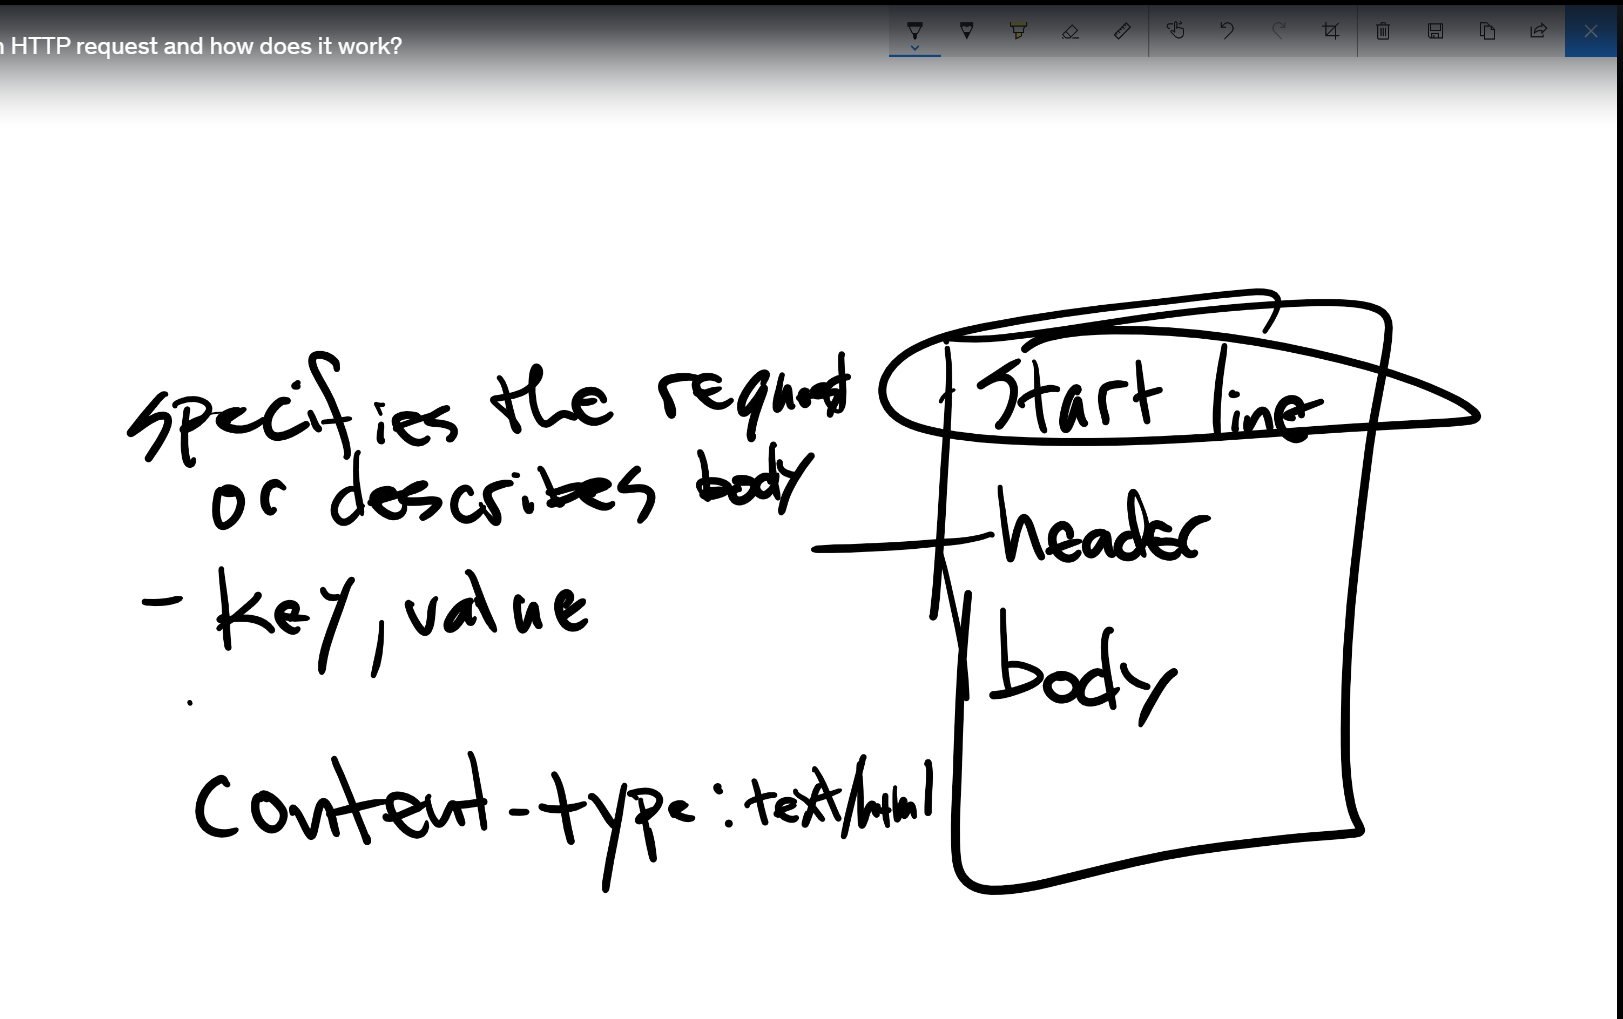 HTTP request and how does it work?
specifies the request
or describes body
- key, value
Content-type: text/html
Start line
header
body